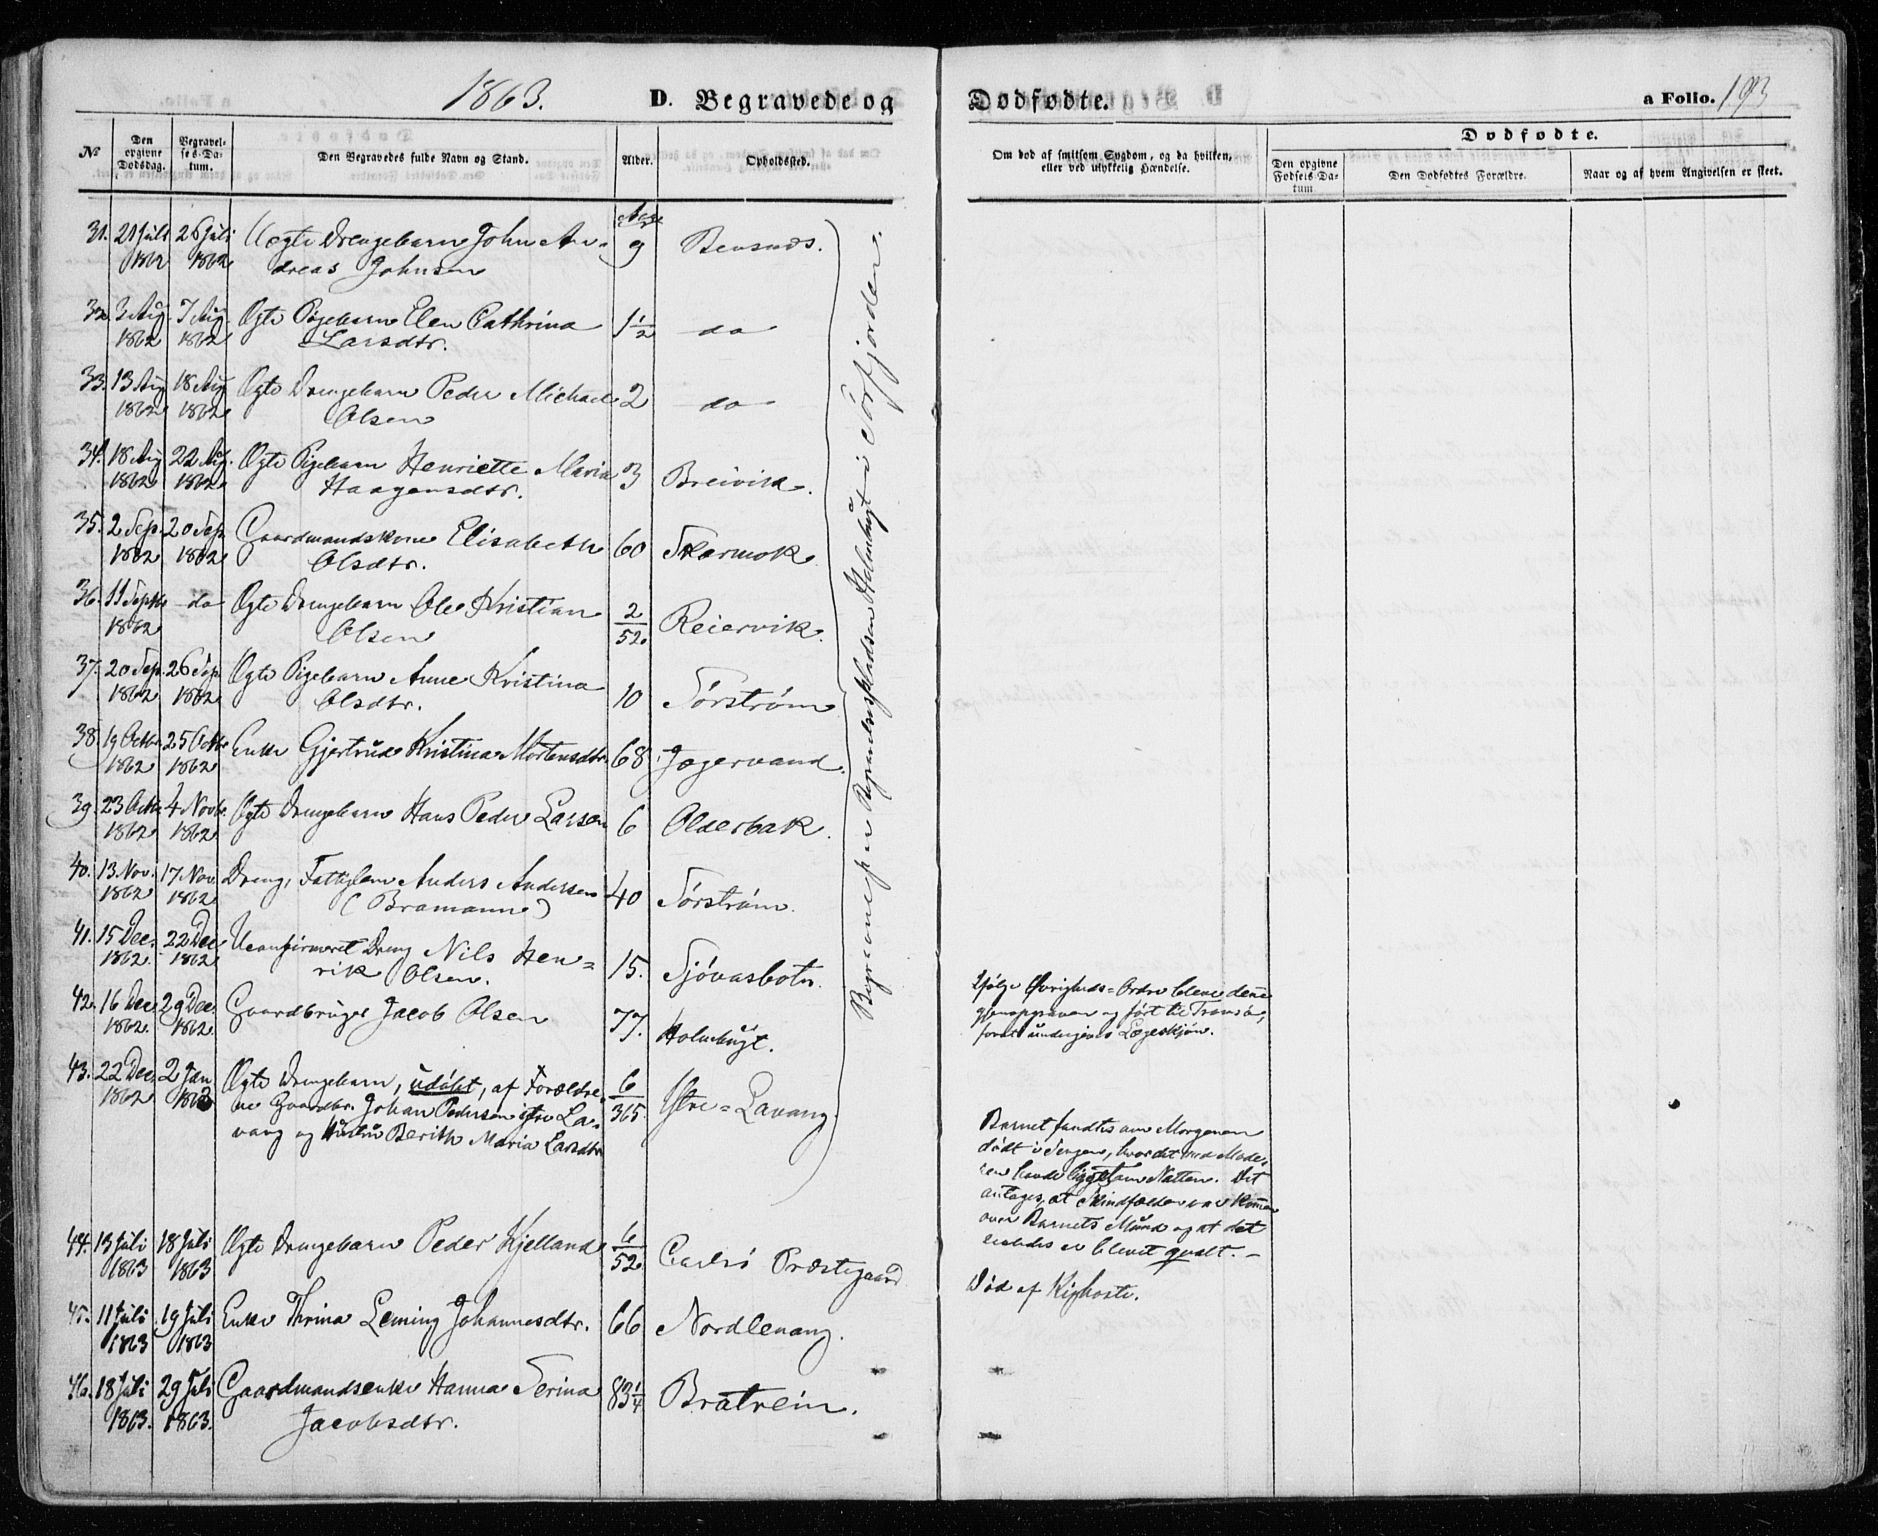 1863.
D. Begravede og Dødfødte.
a Folio. 193
No
Den opgivne Dødsdag.
Begravelses-Datum.
Den Begravedes fulde Navn og Stand.
Alder.
Opholdssted.
Om død af smitsom Sygdom, og da hvilken, eller ved ulykkelig Hændelse.
Dødfødte.
Den opgivne Fødsels-Datum
Den Dødfødtes Forældre.
Naar og af hvem Angivelsen er skeet.
31. 21 Juli 1862 26 Juli 1862 Uægte Drengebarn John An=
dreas Johnsen 9 Bensnæs.
32. 3 Aug. 1862 7 Aug. 1862 Ægte Pigebarn Elen Cathrina
Larsdtr. 1 1/2 do
33. 13 Aug 1862 18 Aug 1862 Ægte Drengebarn Peder Michael
Olsen 2 do
34. 18 Aug 1862 22 Aug. 1862 Ægte Pigebarn Henriette Maria
Haagensdtr. 3 Breivik.
35. 2 Sep. 1862 20 Sep. 1862 Gaardmandskone Elisabeth
Olsdtr. 60 Skarmok
36. 11 Septb 1862 do Ægte Drengebarn Ole Kristian
Olsen 2/52 Reiervik.
37. 20 Sep. 1862 26 Sep. 1862 Ægte Pigebarn Anne Kristina
Olsdtr. 10 Sørstrøm
38. 19 Octbr 1862 25 Octbr 1862 Enke Gjertrud Kristina Mortensdtr. 68 Jægervand.
39. 23 Octb. 1862 4 Novb. 1862 Ægte Drengebarn Hans Peder Larsen 6 Olderbak.
40. 13. Nov. 1862 17. Nov. 1862 Dreng, Fattiglem Anders Andersen
(Bramann) 40 Sørstrøm.
41. 15 Dec. 1862. 22 Dec. 1862 Uconfirmeret Dreng Nils Hen=
rik Olsen. 15. Sjøvasbotn.
42. 16 Dec. 1862. 29 Dec. 1862 Gaardbruger Jacob Olsen 77. Holmbugt.
Ifølge Øvrigheds=Ordre bleve denne
gjenopgraven og ført til Tromsø,
for at undergives Lægeskjøn.
43. 22 Dec. 1862 2 Jan. 1863 Ægte Drengebarn, udøbt, af Forældre=
ne Gaardbr. Johan Pedersen Ytre La=
vang og Hustru Berith Maria Larsdtr. 6/365. Ytre=Lavang.
Barnet fandtes om Morgenen
dødt i Sengen, hvor det med Mode=
ren havde ligget om Natten. Det
antages, at Skindfælden var kommen
over Barnets Mund og at det
saaledes er blevet qvalt. —
Begravne paa Begravelsespladsen Holmbugt i Sørfjorden.
44. 13 Juli 1863 18 Juli 1863 Ægte Drengebarn Peder Kjelland 6/52 Carlsø Præstegaard
Død af Kighoste.
45. 11 Juli 1863 19 Juli 1863 Enke Thrina Leming Johannesdtr. 66 Nordlenang.
46. 18 Juli 1863. 29 Juli 1863. Gaardmandsenke Hanna Serina
Jacobsdtr. 83 1/4 Bratrein.